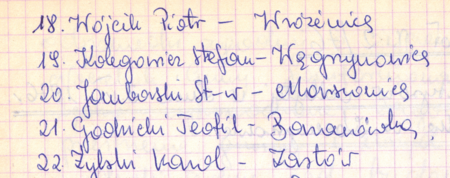 18. Wójcik Piotr - Wróżenica
19. Kolegowicz Stefan - Węgrzynowice
20. Jamborski St-w - Morsownica
21. Godzicki Teofil - Bonanówka
22. Zylski Karol - Zastów